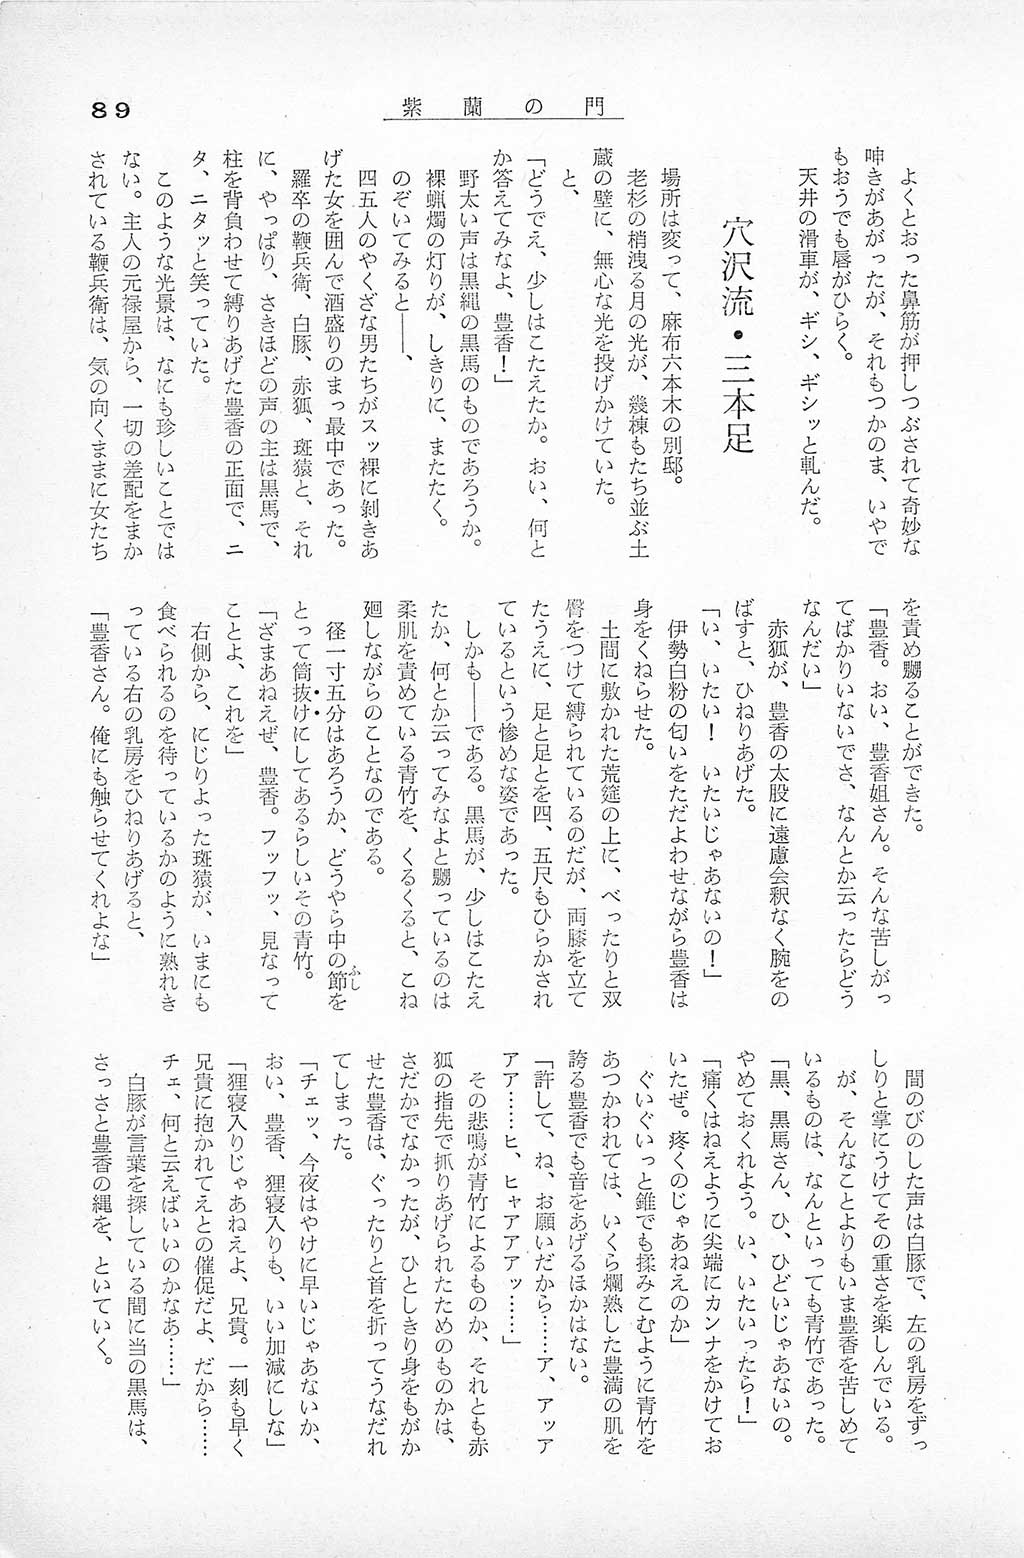 89
紫蘭の門
　よくとおった鼻筋が押しつぶされて奇妙な
呻きがあがったが、それもつかのま、いやで
もおうでも唇がひらく。
　天井の滑車が、ギシ、ギシッと軋んだ。
穴沢流・三本足
　場所は変って、麻布六本木の別邸。
　老杉の梢洩る月の光が、幾棟もたち並ぶ土
蔵の壁に、無心な光を投げかけていた。
　と、
「どうでえ、少しはこたえたか。おい、何と
か答えてみなよ、豊香！」
　野太い声は黒縄の黒馬のものであろうか。
　裸蝋燭の灯りが、しきりに、またたく。
　のぞいてみると――、
　四五人のやくざな男たちがスッ裸に剝きあ
げた女を囲んで酒盛りのまっ最中であった。
　羅卒の鞭兵衛、白豚、赤狐、斑猿と、それ
に、やっぱり、さきほどの声の主は黒馬で、
柱を背負わせて縛りあげた豊香の正面で、ニ
タ、ニタッと笑っていた。
　このような光景は、なにも珍しいことでは
ない。主人の元禄屋から、一切の差配をまか
されている鞭兵衛は、気の向くままに女たち
を責め嬲ることができた。
「豊香。おい、豊香姐さん。そんな苦しがっ
てばかりいないでさ、なんとか云ったらどう
なんだい」
　赤狐が、豊香の太股に遠慮会釈なく腕をの
ばすと、ひねりあげた。
「い、いたい！　いたいじゃあないの！」
　伊勢白粉の匂いをただよわせながら豊香は
身をくねらせた。
　土間に敷かれた荒筵の上に、べったりと双
臀をつけて縛られているのだが、両膝を立て
たうえに、足と足とを四、五尺もひらかされ
ているという惨めな姿であった。
　しかも――である。黒馬が、少しはこたえ
たか、何とか云ってみなよと嬲っているのは
柔肌を責めている青竹を、くるくると、こね
廻しながらのことなのである。
　径一寸五分はあろうか、どうやら中の節を
とって筒抜けにしてあるらしいその青竹。
「ざまあねえぜ、豊香。フッフッ、見なって
ことよ、これを」
　右側から、にじりよった斑猿が、いまにも
食べられるのを待っているかのように熟れき
っている右の乳房をひねりあげると、
「豊香さん。俺にも触らせてくれよな」
　間のびのした声は白豚で、左の乳房をずっ
しりと掌にうけてその重さを楽しんでいる。
　が、そんなことよりもいま豊香を苦しめて
いるものは、なんといっても青竹であった。
「黒、黒馬さん、ひ、ひどいじゃあないの。
やめておくれよう。い、いたいったら！」
「痛くはねえように尖端にカンナをかけてお
いたぜ。疼くのじゃあねえのか」
　ぐいぐいっと錐でも揉みこむように青竹を
あつかわれては、いくら爛熟した豊満の肌を
誇る豊香でも音をあげるほかはない。
「許して、ね、お願いだから……ア、アッア
アア……ヒ、ヒャアアアッ……」
　その悲鳴が青竹によるものか、それとも赤
狐の指先で抓りあげられたためのものかは、
さだかでなかったが、ひとしきり身をもがか
せた豊香は、ぐったりと首を折ってうなだれ
てしまった。
「チェッ、今夜はやけに早いじゃあないか、
おい、豊香、狸寝入りも、いい加減にしな」
「狸寝入りじゃあねえよ、兄貴。一刻も早く
兄貴に抱かれてえとの催促だよ、だから……
チェ、何と云えばいいのかなあ……」
　白豚が言葉を探している間に当の黒馬は、
さっさと豊香の縄を、といていく。